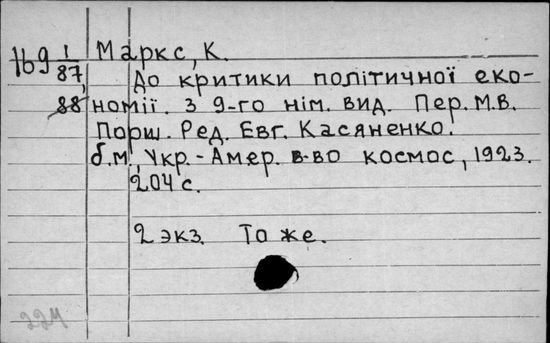 169 1/87, Маркс, К.
До критики політичної еко-
88 номії. З 9-го нім. вид. Пер. М.В.
Порш. Ред. Евг. Касяненко.
б.м., Укр.-Амер. в-во космос, 1923.
204 с.
2 экз. То же.
224